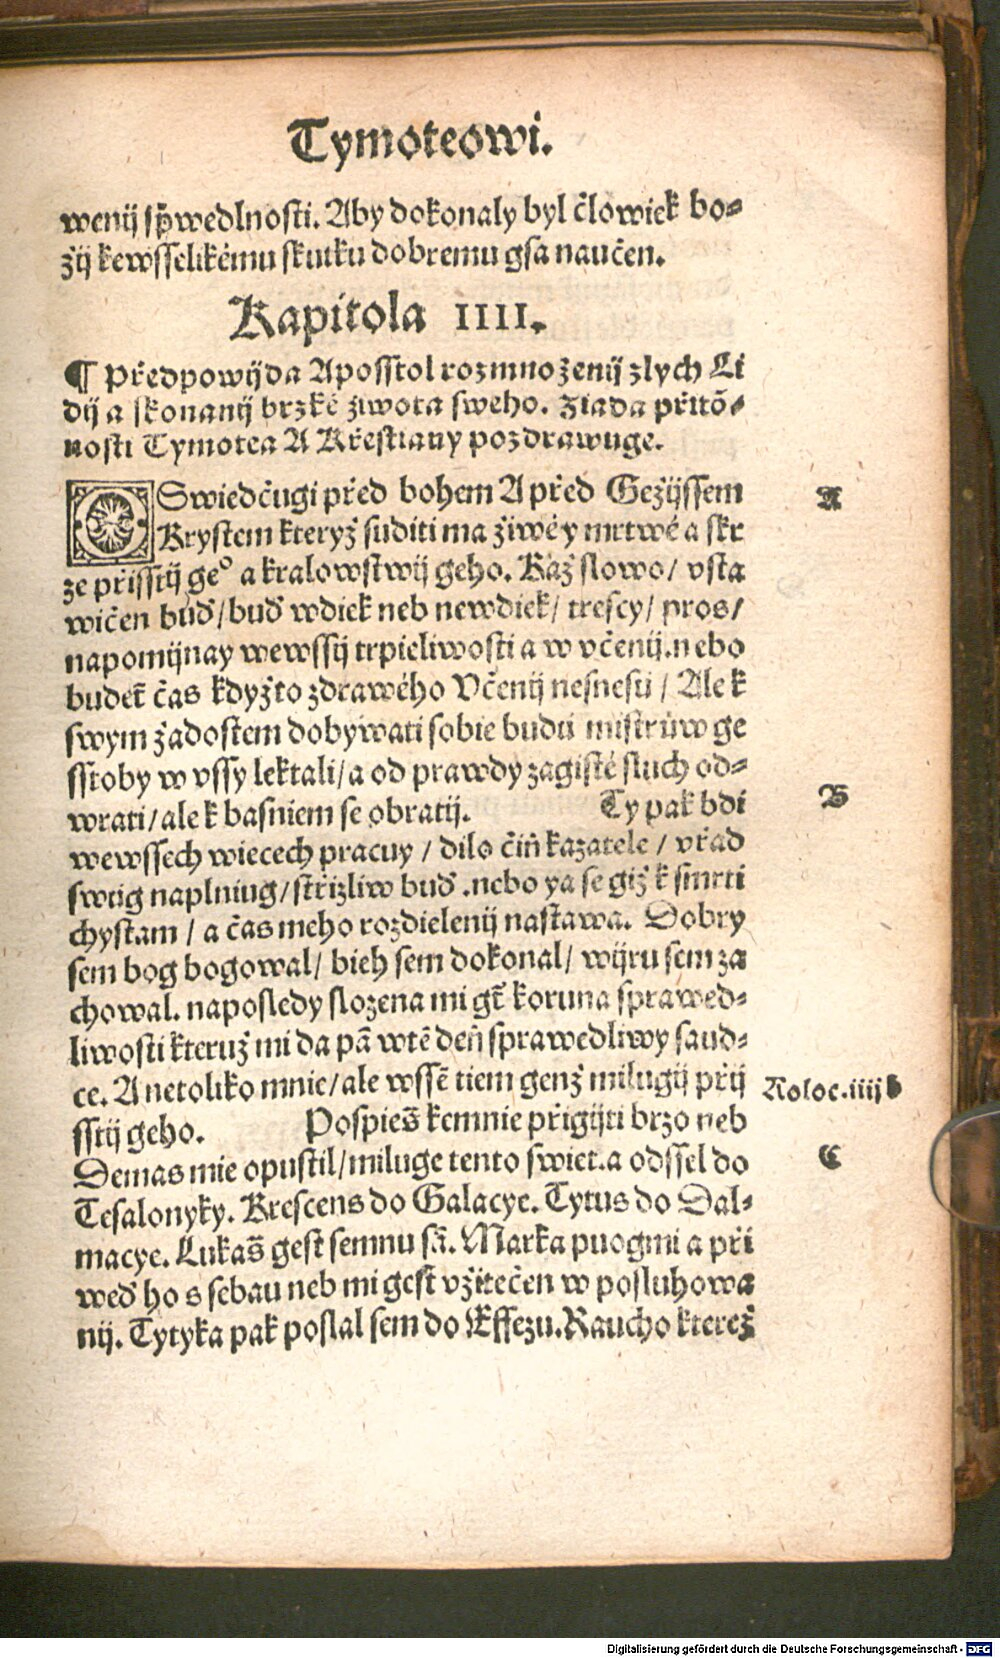 Tymoteowi.
wenij sp̄wedlnosti. Aby dokonaly byl člowiek bo-
žij kewsselikému skutku dobremu gsa naučen.
Kapitola IIII.
¶ Předpowijda Aposstol rozmnoženij zlych Li
dij a skonanij brzké žiwota sweho. Žiada přitō-
nosti Tymotea A Křestiany pozdrawuge.
OSwiedčugi před bohem A před Gežijssem
Krystem kteryž suditi ma žiwé y mrtwé a skr
ze přisstij geº a kralowstwij geho. Kaž slowo/ vsta
wičen buď/buď wdiek neb newdiek/ trescy/ pros/
napomijnay wewssij trpieliwosti a w včenij.nebo
budet̄ čas kdyžto zdrawého Včenij nesnesu / Ale k
swym žadostem dobywati sobie budu mistrůw ge
sstoby w vssy lektali/a od prawdy zagisté sluch od-
wrati/ale k basniem se obratij. Ty pak bdi
A
B
wewssech wiecech pracuy / dilo čiň kazatele / vřad
swůg naplniug/střizliw buď .nebo ya se giž k smrti
chystam / a čas meho rozdielenij nastawa. Dobry
sem bog bogowal/ bieh sem dokonal/ wijru sem za
chowal. naposledy slozena mi gt̄ koruna sprawed-
liwosti kteruž mi da pā wtē deň sprawedliwy saud-
ce. A netoliko mnie/ale wssē tiem genž milugij přij
Koloc.iiij b
sstij geho. Pospieš kemnie přigijti brzo neb
Demas mie opustil/miluge tento swiet.a odssel do
C
Tesalonyky. Krescens do Galacye. Tytus do Dal-
macye. Lukaš gest semnu sā. Marka puogmi a při
weď ho s sebau neb mi gest vžitečen w posluhowa
nij. Tytyka pak poslal sem do Effezu.Raucho kterež